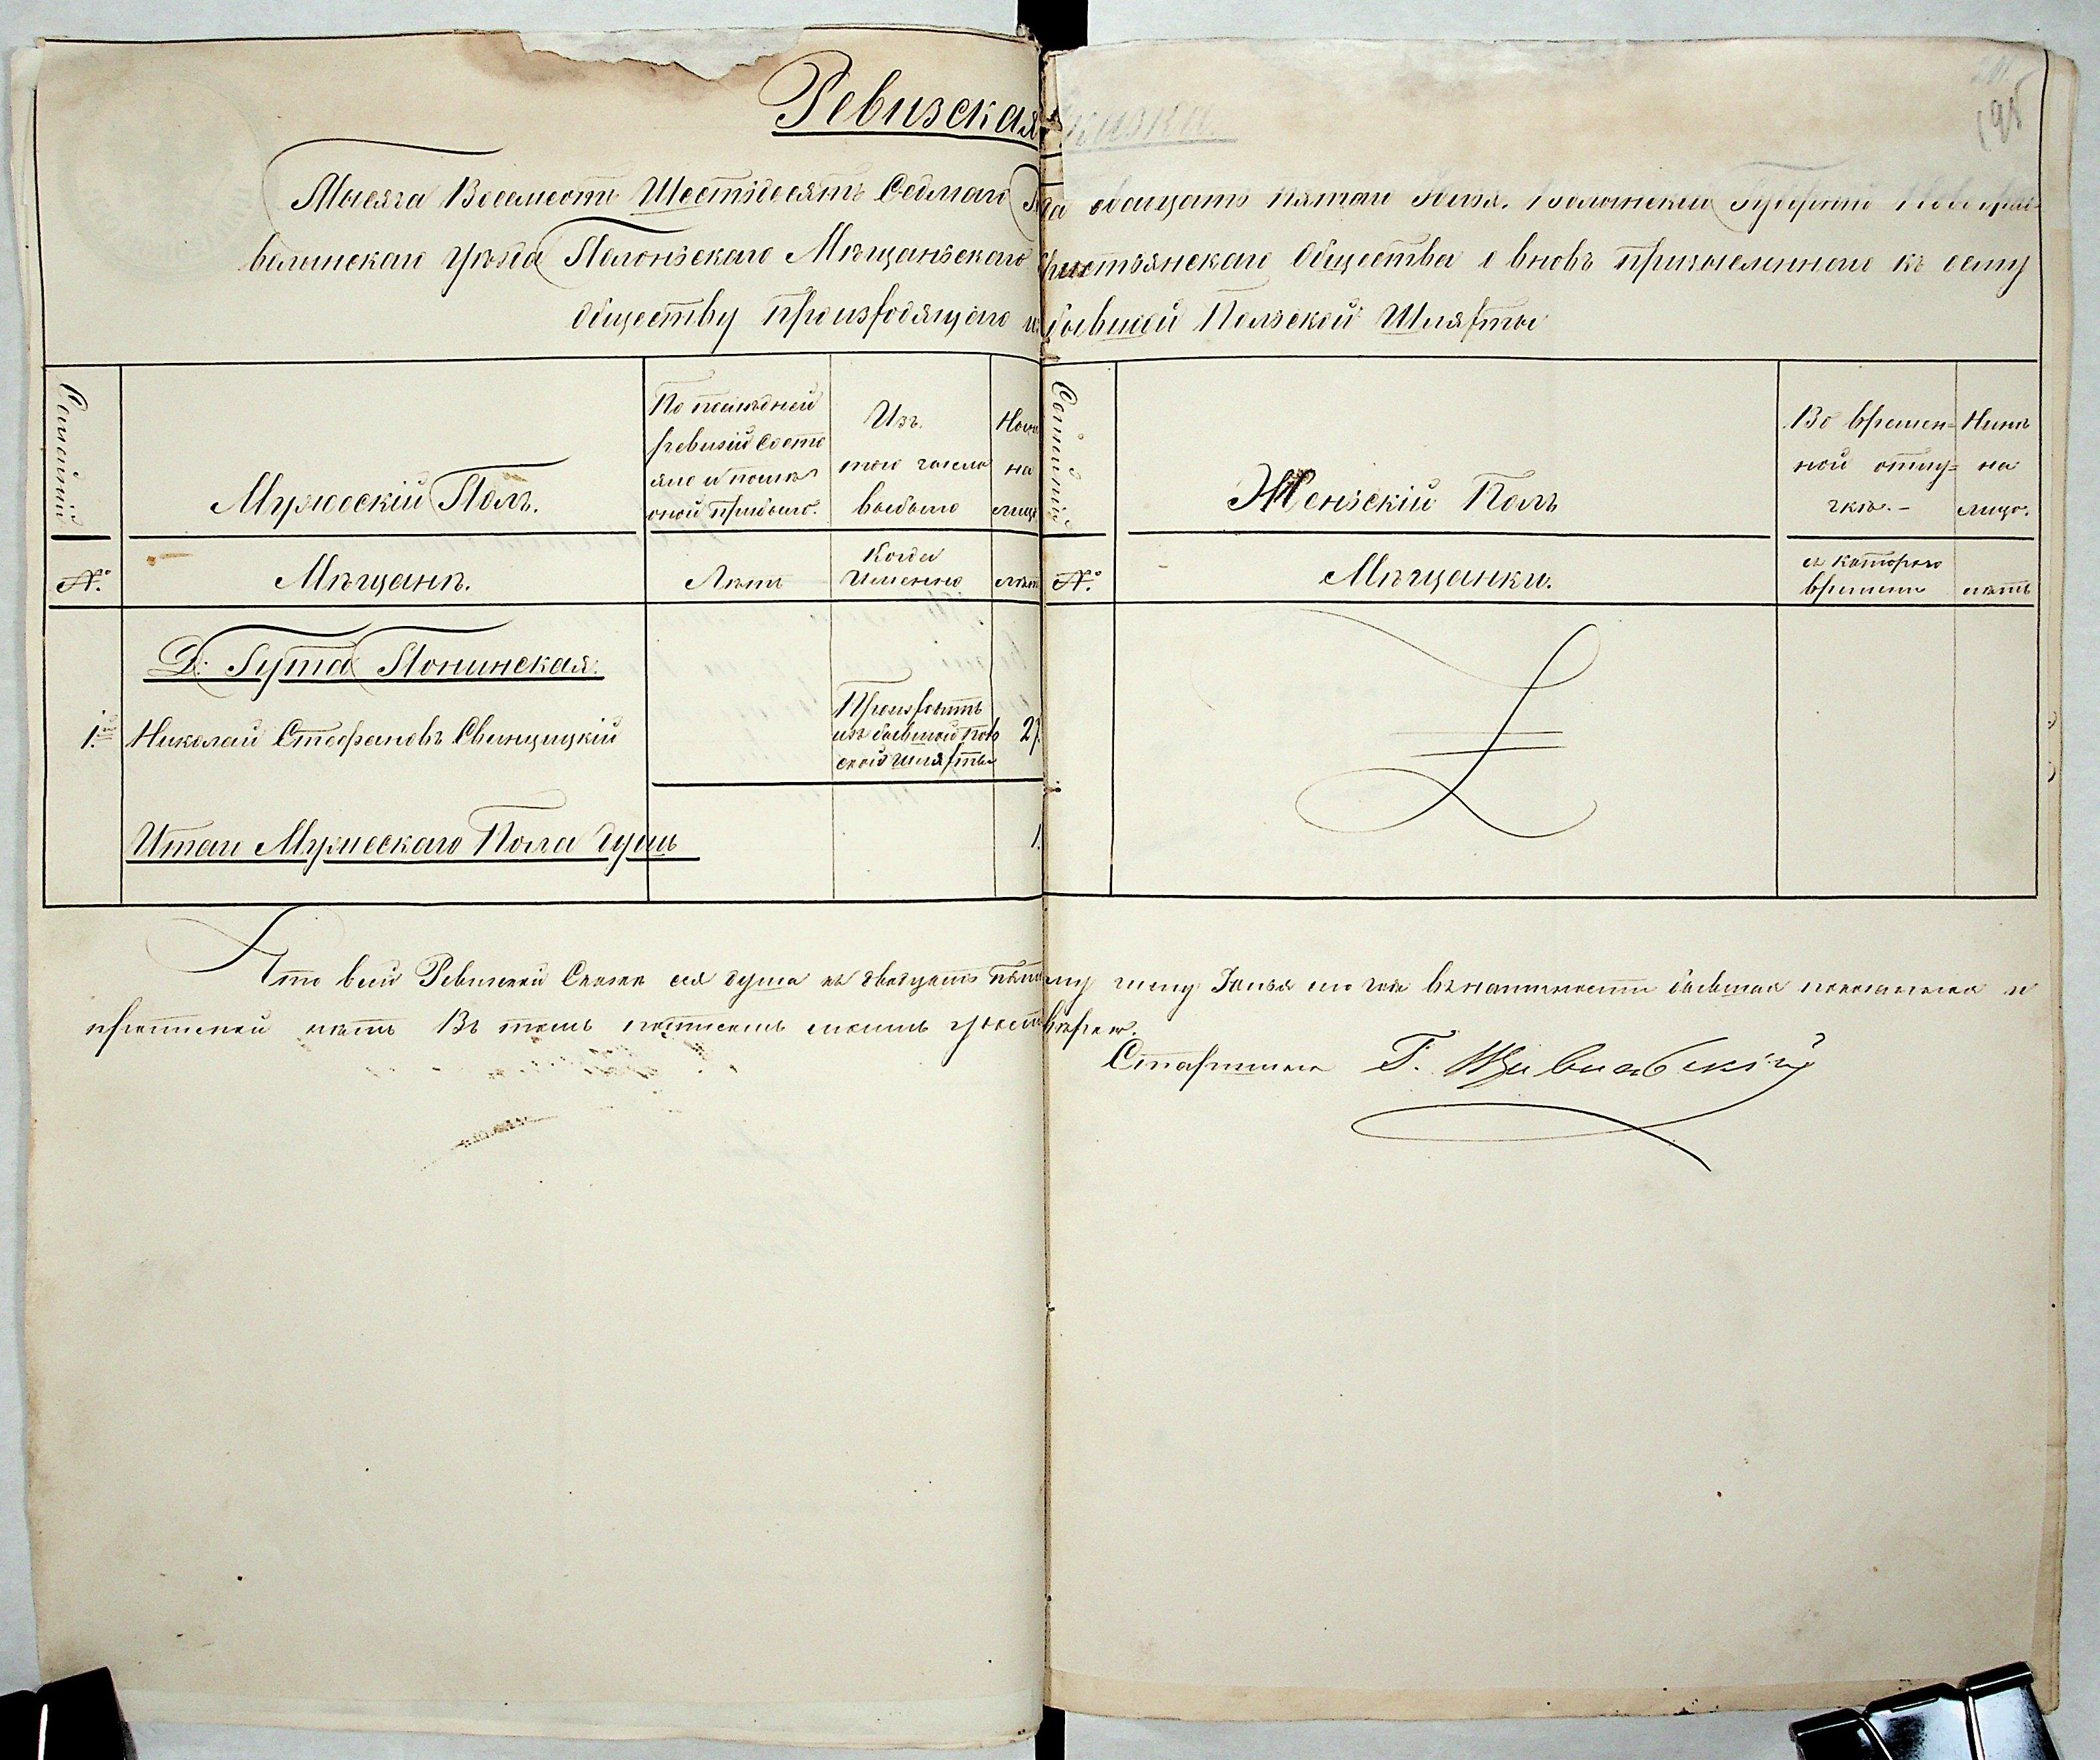 Ревизская Сказка.
195
Тысяча Восемсотъ Шестьдесятъ Седмаго Года двадцать пятаго Іюня. Волынской Губерніи Новоград
волынскаго Уѣзда Полоньскаго Мѣщаньскаго Христьянскаго Общества о вновь причисленномъ къ сему
обществу произходящаго изъ бывшей Польской Шляхты
Семейній
Мужескій Полъ.
По послѣдней
ревизіи состо
яло и послѣ
оной прибыло.
Изъ
того числа
выбыло
Ныне
на
лицо
Семейній
Женьскій Полъ
Во времен=
ной отлу=
чкѣ.-
Нинѣ
на
лицо.
№.
Мѣщанѣ.
Лѣтъ
Когда
Именно
лѣтъ
№.
Мѣщанки.
съ котораго
времени
лѣтъ
Д. Гута Понинская.
1.й
Николай Стефановъ Свинцицкій
Произходитъ
изъ бывшой Поль
ской шляхты
27.
Итого Мужескаго Пола душъ
1.
Что всей Ревизской Сказке сія душа къ двадцать пятому числу Іюнья сего года въ наличности бывшая показанная и
прописной нѣтъ Въ томъ подписомъ своимъ удостовѣряю.
Старшина Г.